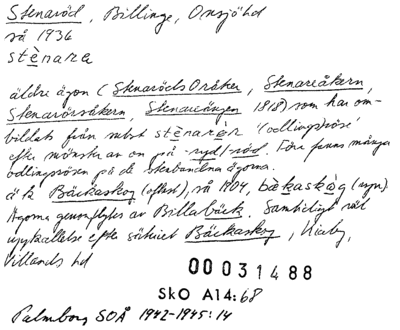 Stenaröd, Billinge, Onsjö hd
så 1936
stènara
äldre ägon (Stenaröds Oråker, Stenareåkern,
Stenarörsåkern, Stenareängen 1818) som har om-
bildats från subst stènarör '(odlings)röse'
efter mönster av on på -ryd/-röd. Före finns många
odlingsrösen på de
ä 12 Bäckaskog (oftast), så 1704, bàkaskåg (nyn).
Ägorna genomflytes av Billabäck. Samtidigt väl
uppkallelse efter säteriet Bäckaskog, Kiaby,
Villands hd
00031488
SkO A14:68
Palmborg SOÅ 1942-1945:14